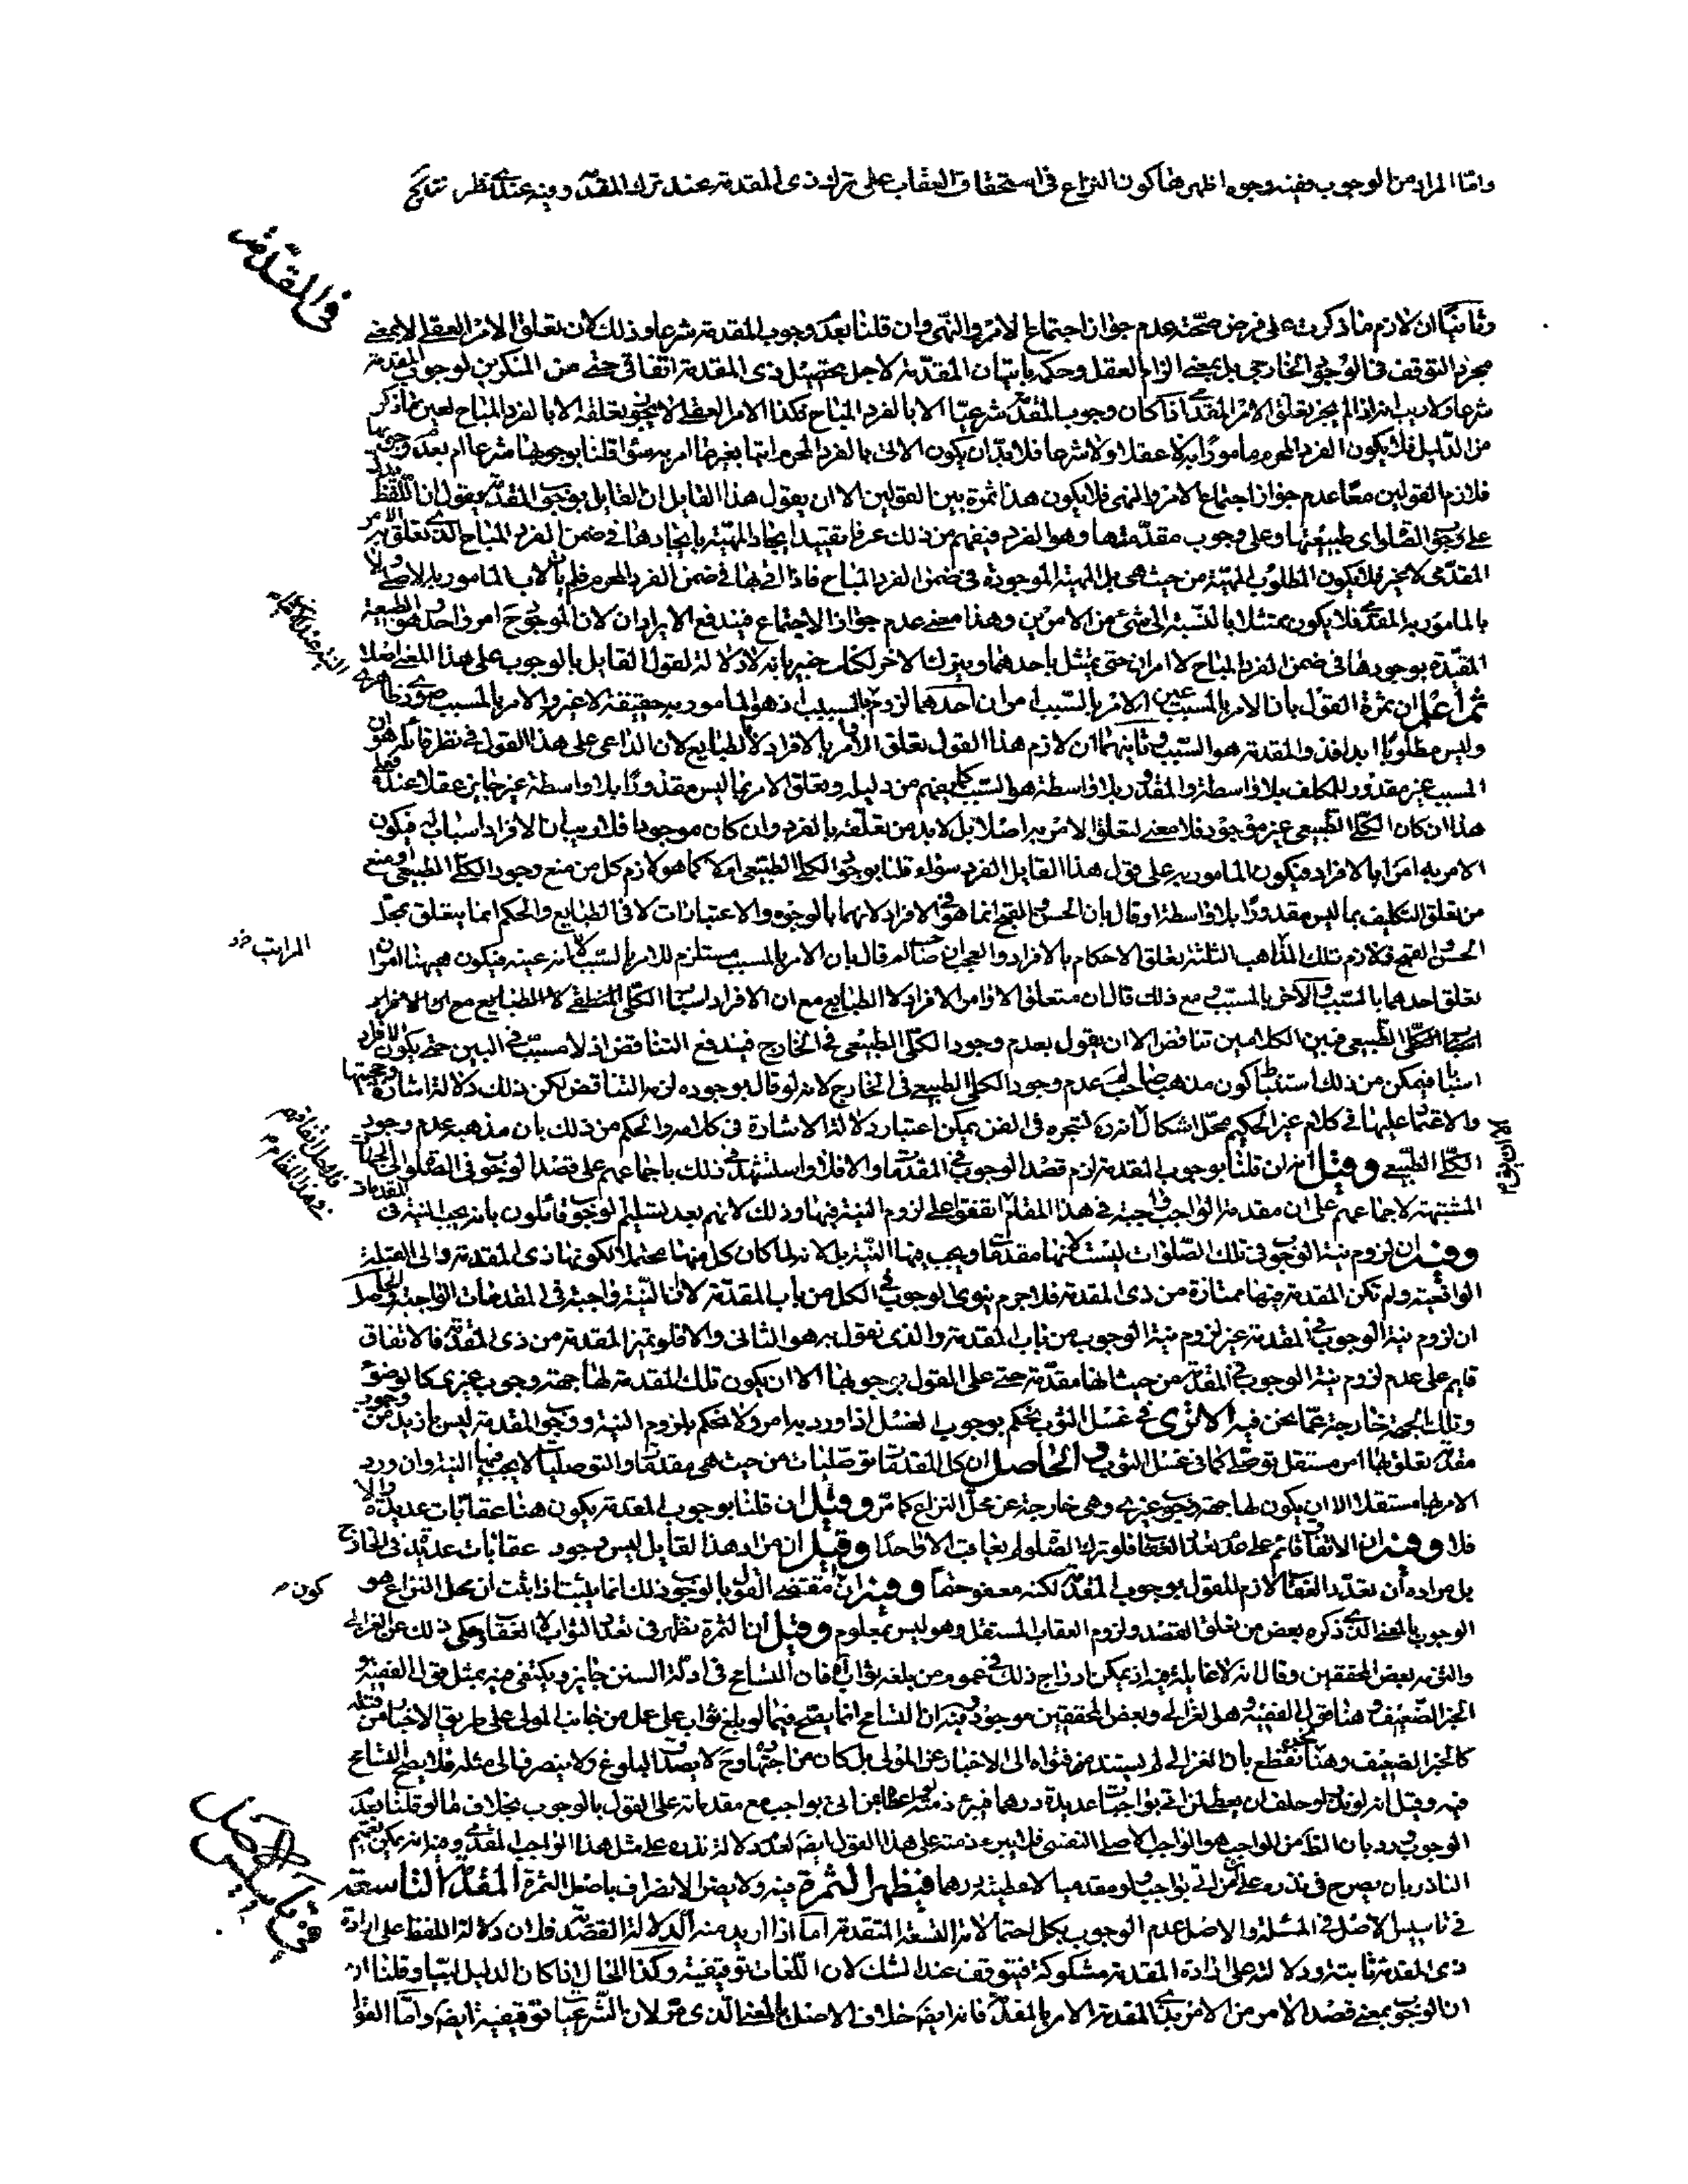 واما المراد من الوجوب ففيه وجوه اظهرها كون النزاع فى استحقاق العقاب على ترك ذى المقدمة عند ترك المقدمة وفيه عندى نظر
فى المقدمة
وثانيا ان لازم ما ذكرت على فرض صحته عدم جواز اجتماع الامر والنهى وان قلنا بعدم وجوب المقدمة شرعا وذلك لان تعلق الامر العقلى لا بمعنى
مجرد التوقف فى الوجود الخارجى بل بمعنى الزام العقل وحكمه باتيان المقدمة لاجل تحصيل ذى المقدمة اتفاقى حتى من المنكرين لوجوب المقدمة
شرعا ولا ريب انه اذا لم يجز تعلق الامر المقدمى اذا كان وجوب المقدمة شرعيا الا بالفرد المباح فكذا الامر العقلى لا يجوز تعلقه الا بالفرد المباح لعين ما ذكر
من الدليل فلا يكون الفرد المحرم مامورا به لا عقلا ولا شرعا فلا بد ان يكون الاتى بالفرد المحرم اتيا بغير ما امر به سواء قلنا بوجوبها شرعا ام بعدم وجوبها
فلازم القولين معا عدم جواز اجتماع الامر والنهى فلا يكون هذا ثمرة بين القولين الا ان يقول هذا القايل ان القايل بوجوب المقدمة يقول ان اللفظ يدل
على وجوب الصلوة اى طبيعتها وعلى وجوب مقدمتها وهو الفرد فيفهم من ذلك عرفا تقييد ايجاد المهية بايجادها فى ضمن الفرد المباح الذى تعلق به الامر
المقدمى لا غير فلا يكون المطلوب المهية من حيث هى بل المهية الموجودة فى ضمن الفرد المباح فاذا اتى بها فى ضمن الفرد المحرم فلم يات لا بالمامور به الاصلى ولا
بالمامور به المقدمى فلا يكون ممتثلا بالنسبة الى شئ من الامرين وهذا معنى عدم جواز الاجتماع فيندفع الايراد ان لان الموجود ح امر واحد هو الطبيعة
المقيدة بوجودها فى ضمن الفرد المباح لا امران حتى يمتثل باحدهما ويترك الاخر لكنك خبير بانه لا دلالة لقول القايل بالوجوب على هذا المعنى اصلا
ثم اعلم ان ثمرة القول بان الامر بالمسبب عين الامر بالسبب امران احدهما لزوم
وليس مطلوبا ابدا فذو المقدمة هو السبب وثانيهما ان لازم هذا القول تعلق الاوامر بالافراد لا الطبايع لان الداعى على هذا القول فى نظر قائله هو ان
المسبب غير مقدور للمكلف بلا واسطة والمقدور بلا واسطة هو السبب كما يفهم من دليله وتعلق الامر بما ليس مقدورا بلا واسطة غير جايز عقلا عنده فعلى
هذا ان كان الكلى الطبيعى غير موجود فلا معنى لتعلق الامر به اصلا بل لا بد من تعلقه بالفرد وان كان موجودا فلا ريب ان الافراد اسباب له فيكون
الامر به امرا بالافراد فيكون المامور به على قول هذا القايل الفرد سواء قلنا بوجود الكلى الطبيعى ام لا كما هو لازم كل من منع وجود الكلى الطبيعى او منع
من تعلق التكليف بما ليس مقدورا بلا واسطة او قال بان الحسن والقبح انما هو فى الافراد لانهما بالوجوه والاعتبارات لا فى الطبايع والحكم انما يتعلق بمحل
الحسن والقبح فلازم تلك المذاهب الثلثة تعلق الاحكام بالافراد والعجب ان صاحب لم قال بان الامر بالمسبب مستلزم للامر بالسبب لا انه عينه فيكون هيهنا امران
تعلق احدهما بالمسبب والآخر بالسبب ومع ذلك قال ان متعلق الاوامر الافراد لا الطبايع مع ان الافراد
الكلى الطبيعى فبين الكلامين تناقض الا ان يقول بعدم وجود الكلى الطبيعى فى الخارج فيندفع التناقض اذ لا مسبب فى البين حتى يكون الافراد
اسبابا فيمكن من ذلك استنباط كون مذهب صاحب لم عدم وجود الكلى الطبيعى فى الخارج لانه لو قال بوجوده لزم التناقض لكن ذلك دلالة اشارة وحجيتها
والاعتماد عليها فى كلام غير الحكيم محل اشكال لتبحره فى الفن يمكن اعتبار دلالة الاشارة فى كلامه والحكم من ذلك بان مذهبه عدم وجود
الكلى الطبيعى وقيل انه ان قلنا بوجوب المقدمة لزم قصد الوجوب فى المقدمات والا فلا واستشهد فى ذلك باجماعهم على قصد الوجوب فى الصلوة الى الجهات
المشتبهة لاجماعهم على ان مقدمة الواجب واجبة فى هذا المقام اتفقوا على لزوم النية فيها وذلك لانهم بعد تسليم الوجوب قائلون بانه يجب النية فى المقدمات
وفيه ان لزوم نية الوجوب فى تلك الصلوات ليست لكونها مقدمة ويجب فيها النية بل لانه لما كان كل منها محتملا لكونها ذى المقدمة والى القبلة
الواقعية ولم تكن المقدمة فيها ممتازة من ذى المقدمة فلا جرم ينوى الوجوب فى الكل من باب المقدمة لا ان النية واجبة فى المقدمات الواجبة والحاصل
ان لزوم نية الوجوب فى المقدمة غير لزوم نية الوجوب من باب المقدمة والذى نقول به هو الثانى والا فلو تميز المقدمة من ذى المقدمة فالاتفاق
قايم على عدم لزوم نية الوجوب فى المقدمة من حيث انها مقدمة حتى على القول بوجوبها الا ان يكون تلك المقدمة لها جهة وجوب غيرى كالوضوء
وتلك الجهة خارجة عما نحن فيه الا ترى فى غسل الثوب نحكم بوجوب الغسل اذا ورد به امر ولا نحكم بلزوم النية ووجوب المقدمة ليس بازيد من وجوب
مقدمة تعلق بها امر مستقل توصلى كما فى غسل الثوب والحاصل ان كل المقدمات توصليات من حيث هى مقدمة والتوصليات لا يجب فيها النية وان ورد
الامر بها مستقلا الا ان يكون لها جهة وجوب غيره وهى خارجة عن محل النزاع كما مر وقيل ان قلنا بوجوب المقدمة يكون هنا عقابات عديدة والا
فلا وفيه ان الاتفاق قائم على عدم تعدد العقاب فلو ترك الصلوة لم يعاقب الا واحدا وقيل ان مراد هذا القايل ليس وجود عقابات عديدة فى الخارج
بل مراده ان تعدد العقاب لازم للقول بوجوب المقدمة لكنه معفو حتما وفيه ان مقتضى القول بالوجوب ذلك انما يثبت اذا ثبت ان محل النزاع هو
كون
الوجوب بالمعنى الذى ذكره بعض من تعلق القصد ولزوم العقاب المستقل وهو ليس بمعلوم وقيل ان الثمرة تظهر فى تعدد الثواب لا العقاب وحكى ذلك عن الغزالى
والتزمه بعض المحققين وقال انه لا غايلة فيه اذ يمكن ادراج ذلك فى عموم من بلغه ثواب آه فان التسامح فى ادلة السنن جايز ويكتفى فيه بمثل قول الفقيه و
الخبر الضعيف وهنا قول الفقيه وهو الغزالى وبعض المحققين موجود وفيه ان التسامح انما يصح فيما لو بلغ ثواب على عمل من جانب المولى على طريق الاخبار من قبله
كالخبر الضعيف وهنا نقطع بان الغزالى لم يستند فى فتواه الى الاخبار عن المولى بل كان من اجتهاده وح لا يصدق البلوغ ولا ينصرف الى مثله فلا يصح التسامح
فيه وقيل انه لو نذر او حلف ان يعطى لمن اتى بواجبات عديدة درهما فيبرء ذمته باعطائه من اتى بواجب مع مقدماته على القول بالوجوب بخلاف ما لو قلنا بعدم
الوجوب ورد بان الظ من الواجب هو الواجب الاصلى النفسى فلا يبرء ذمته على هذا القول ايضا لعدم دلالة نذره على مثل هذا الواجب المقدمى وفيه انه يمكن تعميم
الناذر بان يصرح فى نذره على ان من اتى بواجب ولو مقدميا لاعطيته درهما فيظهر الثمرة فيه ولا يضر الانصراف باصل الثمرة المقدمة التاسعة
فى تاسيس الاصل
فى تاسيس الاصل فى المسئلة والاصل عدم الوجوب بكل احتمالاته التسعة المتقدمة اما اذا اريد منه الدلالة القصدية فلان دلالة اللفظ على ارادة
ذى المقدمة ثابتة ودلالته على ارادة المقدمة مشكوكة فيتوقف عند الشك لان اللغات توقيفية وكذا الحال اذا كان الدليل لبيا وقلنا ان
ان الوجوب بمعنى قصد الامر من الامر بذى المقدمة الامر بالمقدمة فانه ايضا خلاف الاصل بالمعنى الذى مر لان الشرعيات توقيفية ايضا واما القول